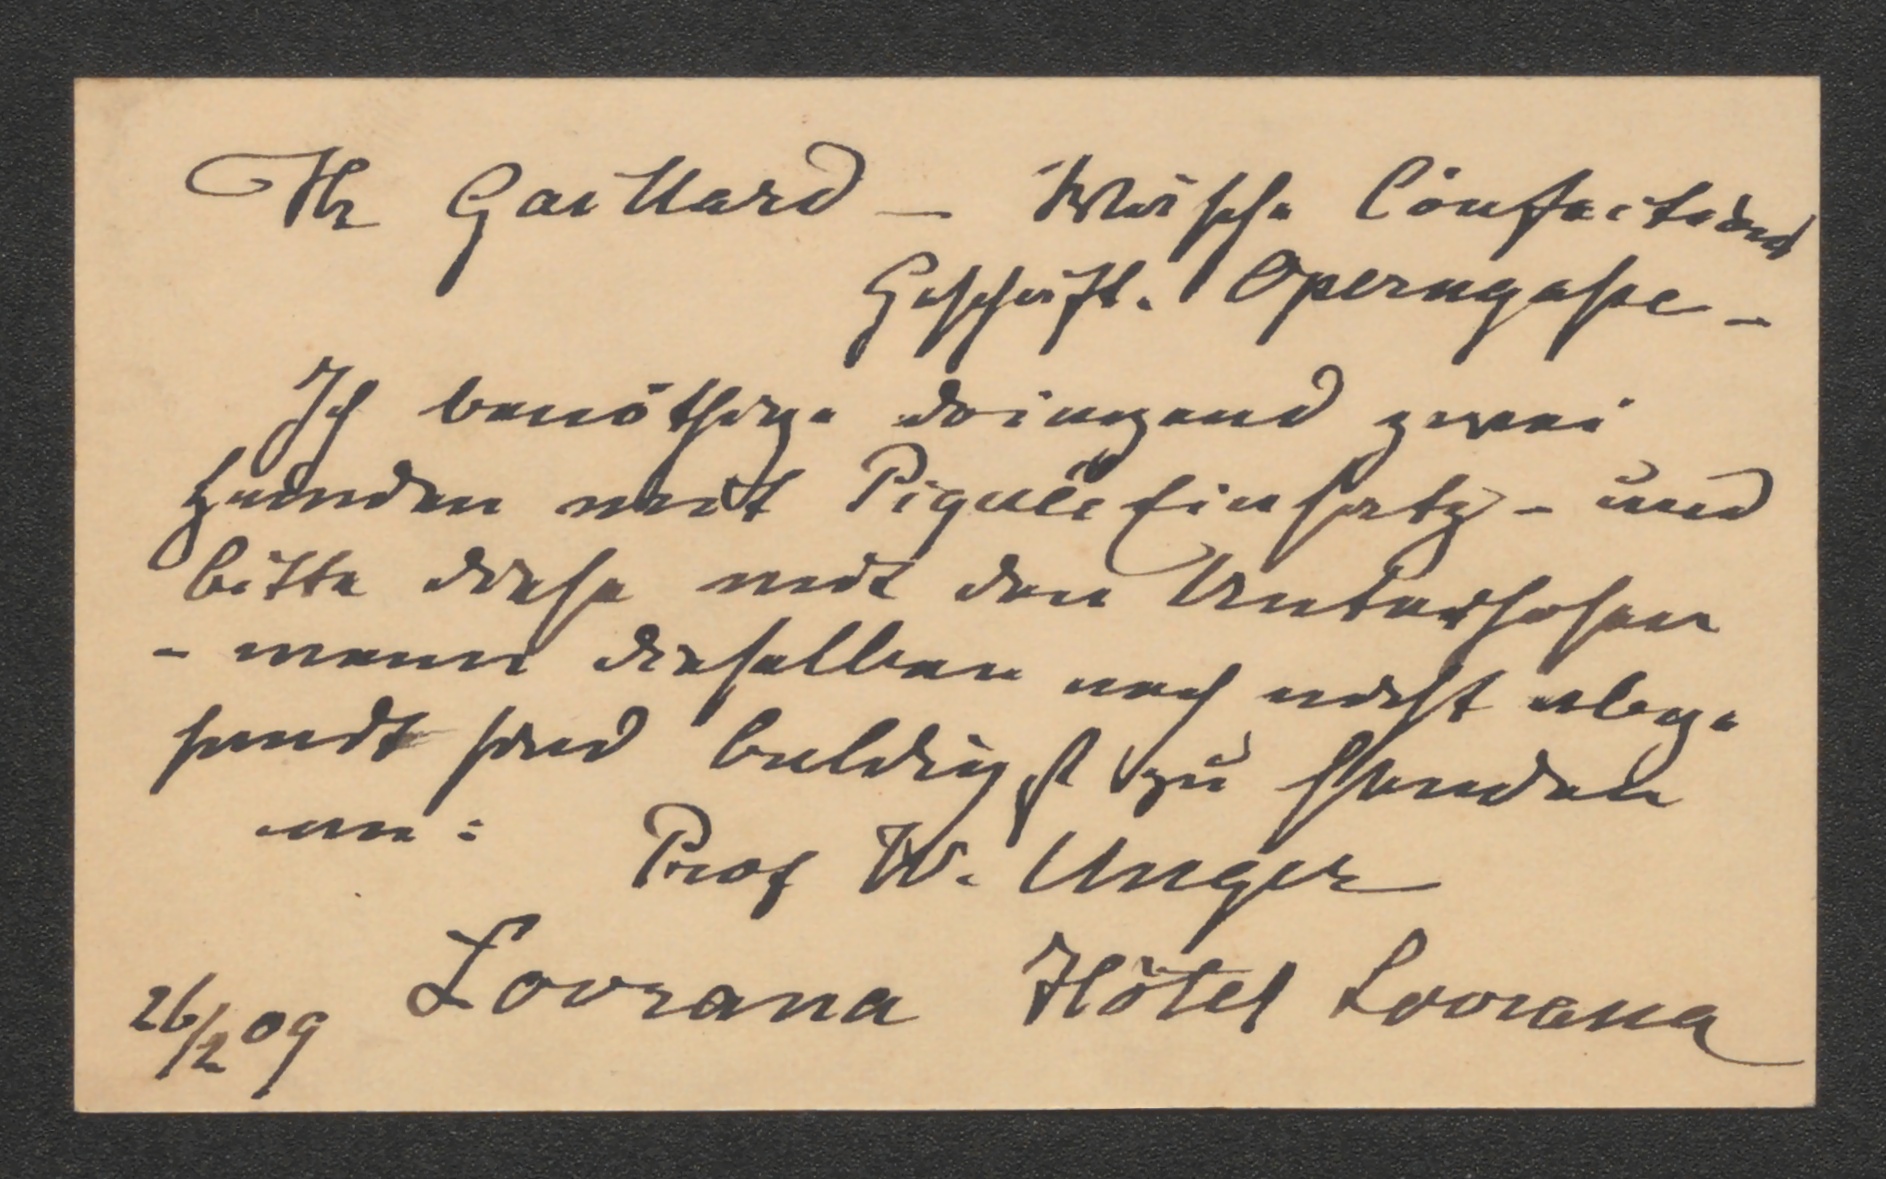 Th Gaillard – Wäsche Confections
Geschäft. Operngasse –
Ich benöthige dringend zwei
Hemden mit Piqué Einsatz – und
bitte diese mit den Unterhosen
– wenn dieselben noch nicht abge
sendt sind baldigst zu senden
an:
Prof W. Unger
Lovrana Hôtel Lovrana
26/2 09